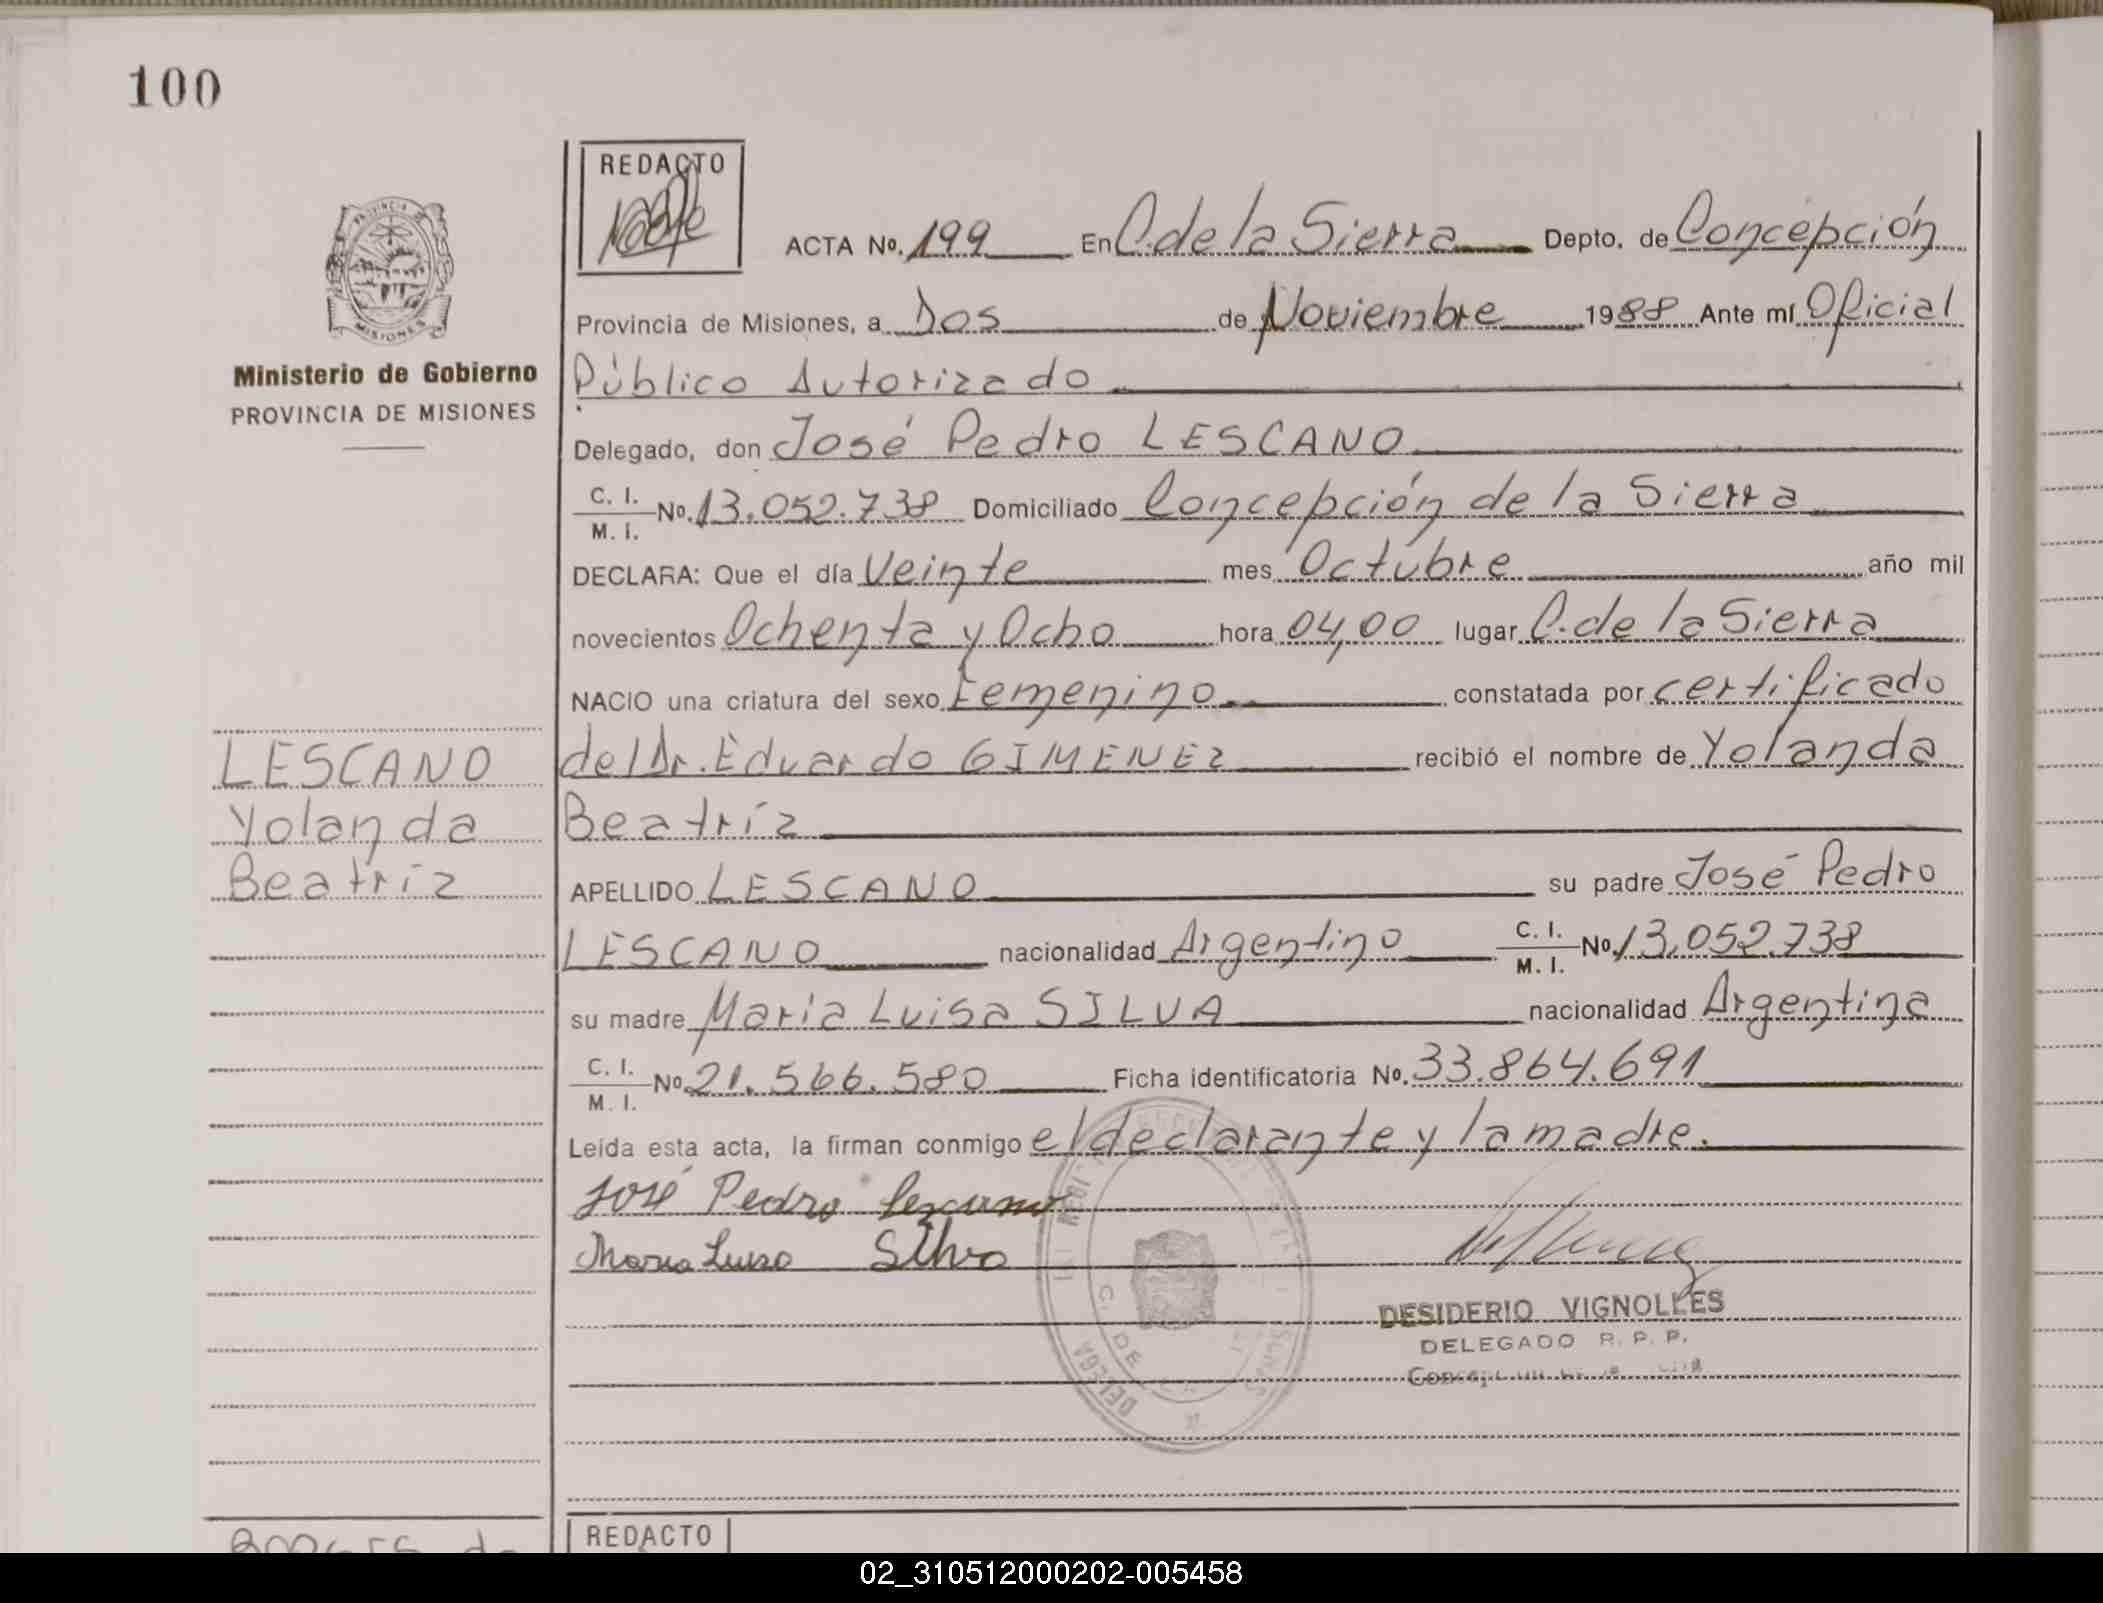 100
REDACTO
ACTA No. 199 En C. de la Sierra Depto. de Concepción
Provincia de Misiones, a Dos de Noviembre 1988 Ante mí Oficial
Público Autorizado
Delegado, don José Pedro LESCANO
C. I.
M. I. No. 13.052.738 Domiciliado Concepción de la Sierra
DECLARA: Que el día Veinte mes Octubre año mil
novecientos Ochenta y Ocho hora 04,00 lugar C. de la Sierra
NACIO una criatura del sexo Femenino constatada por certificado
del Dr. Eduardo GIMENEZ recibió el nombre de Yolanda
Beatríz
APELLIDO LESCANO su padre José Pedro
LESCANO nacionalidad Argentino C. I.
M. I. No. 13.052.738
su madre María Luisa SILVA nacionalidad Argentina
C. I.
M. I. No. 21.566.580 Ficha identificatoria No. 33.864.691
Leída esta acta, la firman conmigo el declarante y la madre.
José Pedro Lescano
Maria Luisa Silva
DESIDERIO VIGNOLLES
DELEGADO R. P. P.
PROVINCIA DE
MISIONES
Ministerio de Gobierno
PROVINCIA DE MISIONES
LESCANO
Yolanda
Beatríz
C. DE LA
REDACTO
02_310512000202-005458